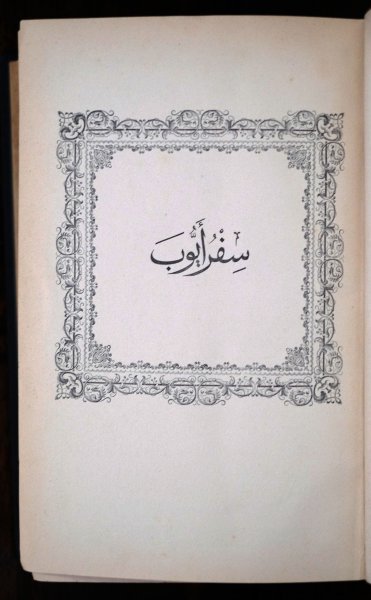 سِفْرُ أَيُّوبَ